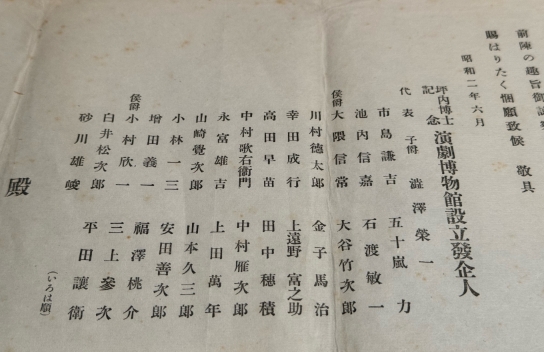 前陳の趣旨御諒
賜はりたく悃願致候 敬具
昭和二年六月
坪内博士記念 演劇博物館設立發企人
代表 子爵 澁澤榮一
市島謙吉 五十嵐力
池内信嘉 石渡敏一
侯爵 大隈信常 大谷竹次郎
川村徳太郎 金子馬治
幸田成行 上遠野富之助
高田早苗 田中穂積
中村歌右衞門 中村雁次郎
永富雄吉 上田萬年
山崎覺次郎 山本久三郎
小林一三 安田善次郎
増田義一 福澤桃介
侯爵 小村欣一 三上參次
白井松次郎 平田讓衛
砂川雄峻
(いろは順)
殿